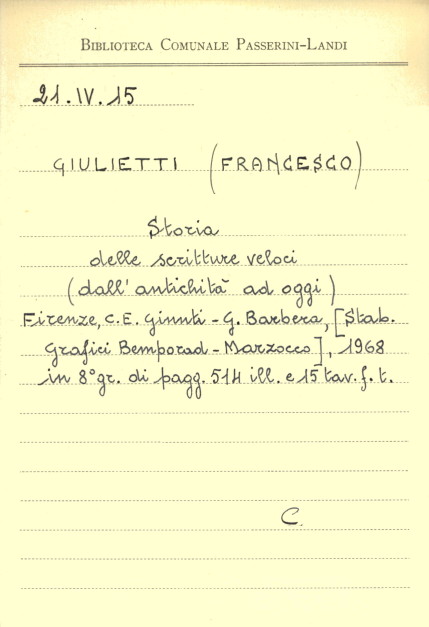 BIBLIOTECA COMUNALE PASSERINI-LANDI
21.IV.15
GIULIETTI (FRANCESCO)
Storia
delle scritture veloci
(dall'antichità ad oggi)
Firenze, C.E. Giunti - G. Barbera, [Stab.
Grafici Bemporad - Marzocco], 1968
in 8° gr. di pagg. 514 ill. e 15 tav. f. t.
C.